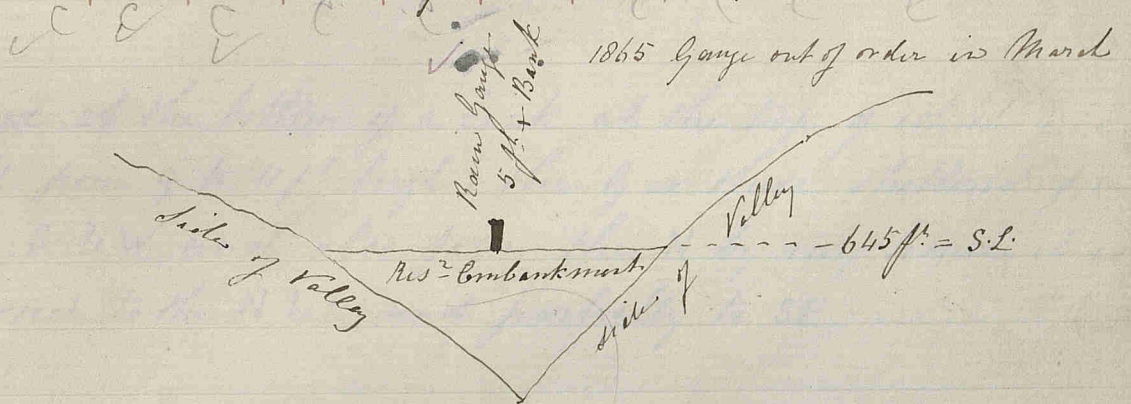 1865 Gauge out of order in March
Rain Gauge
5 ft + Bank
Side of Valley
Resr Embankment
Side of Valley
645 ft = S.L.